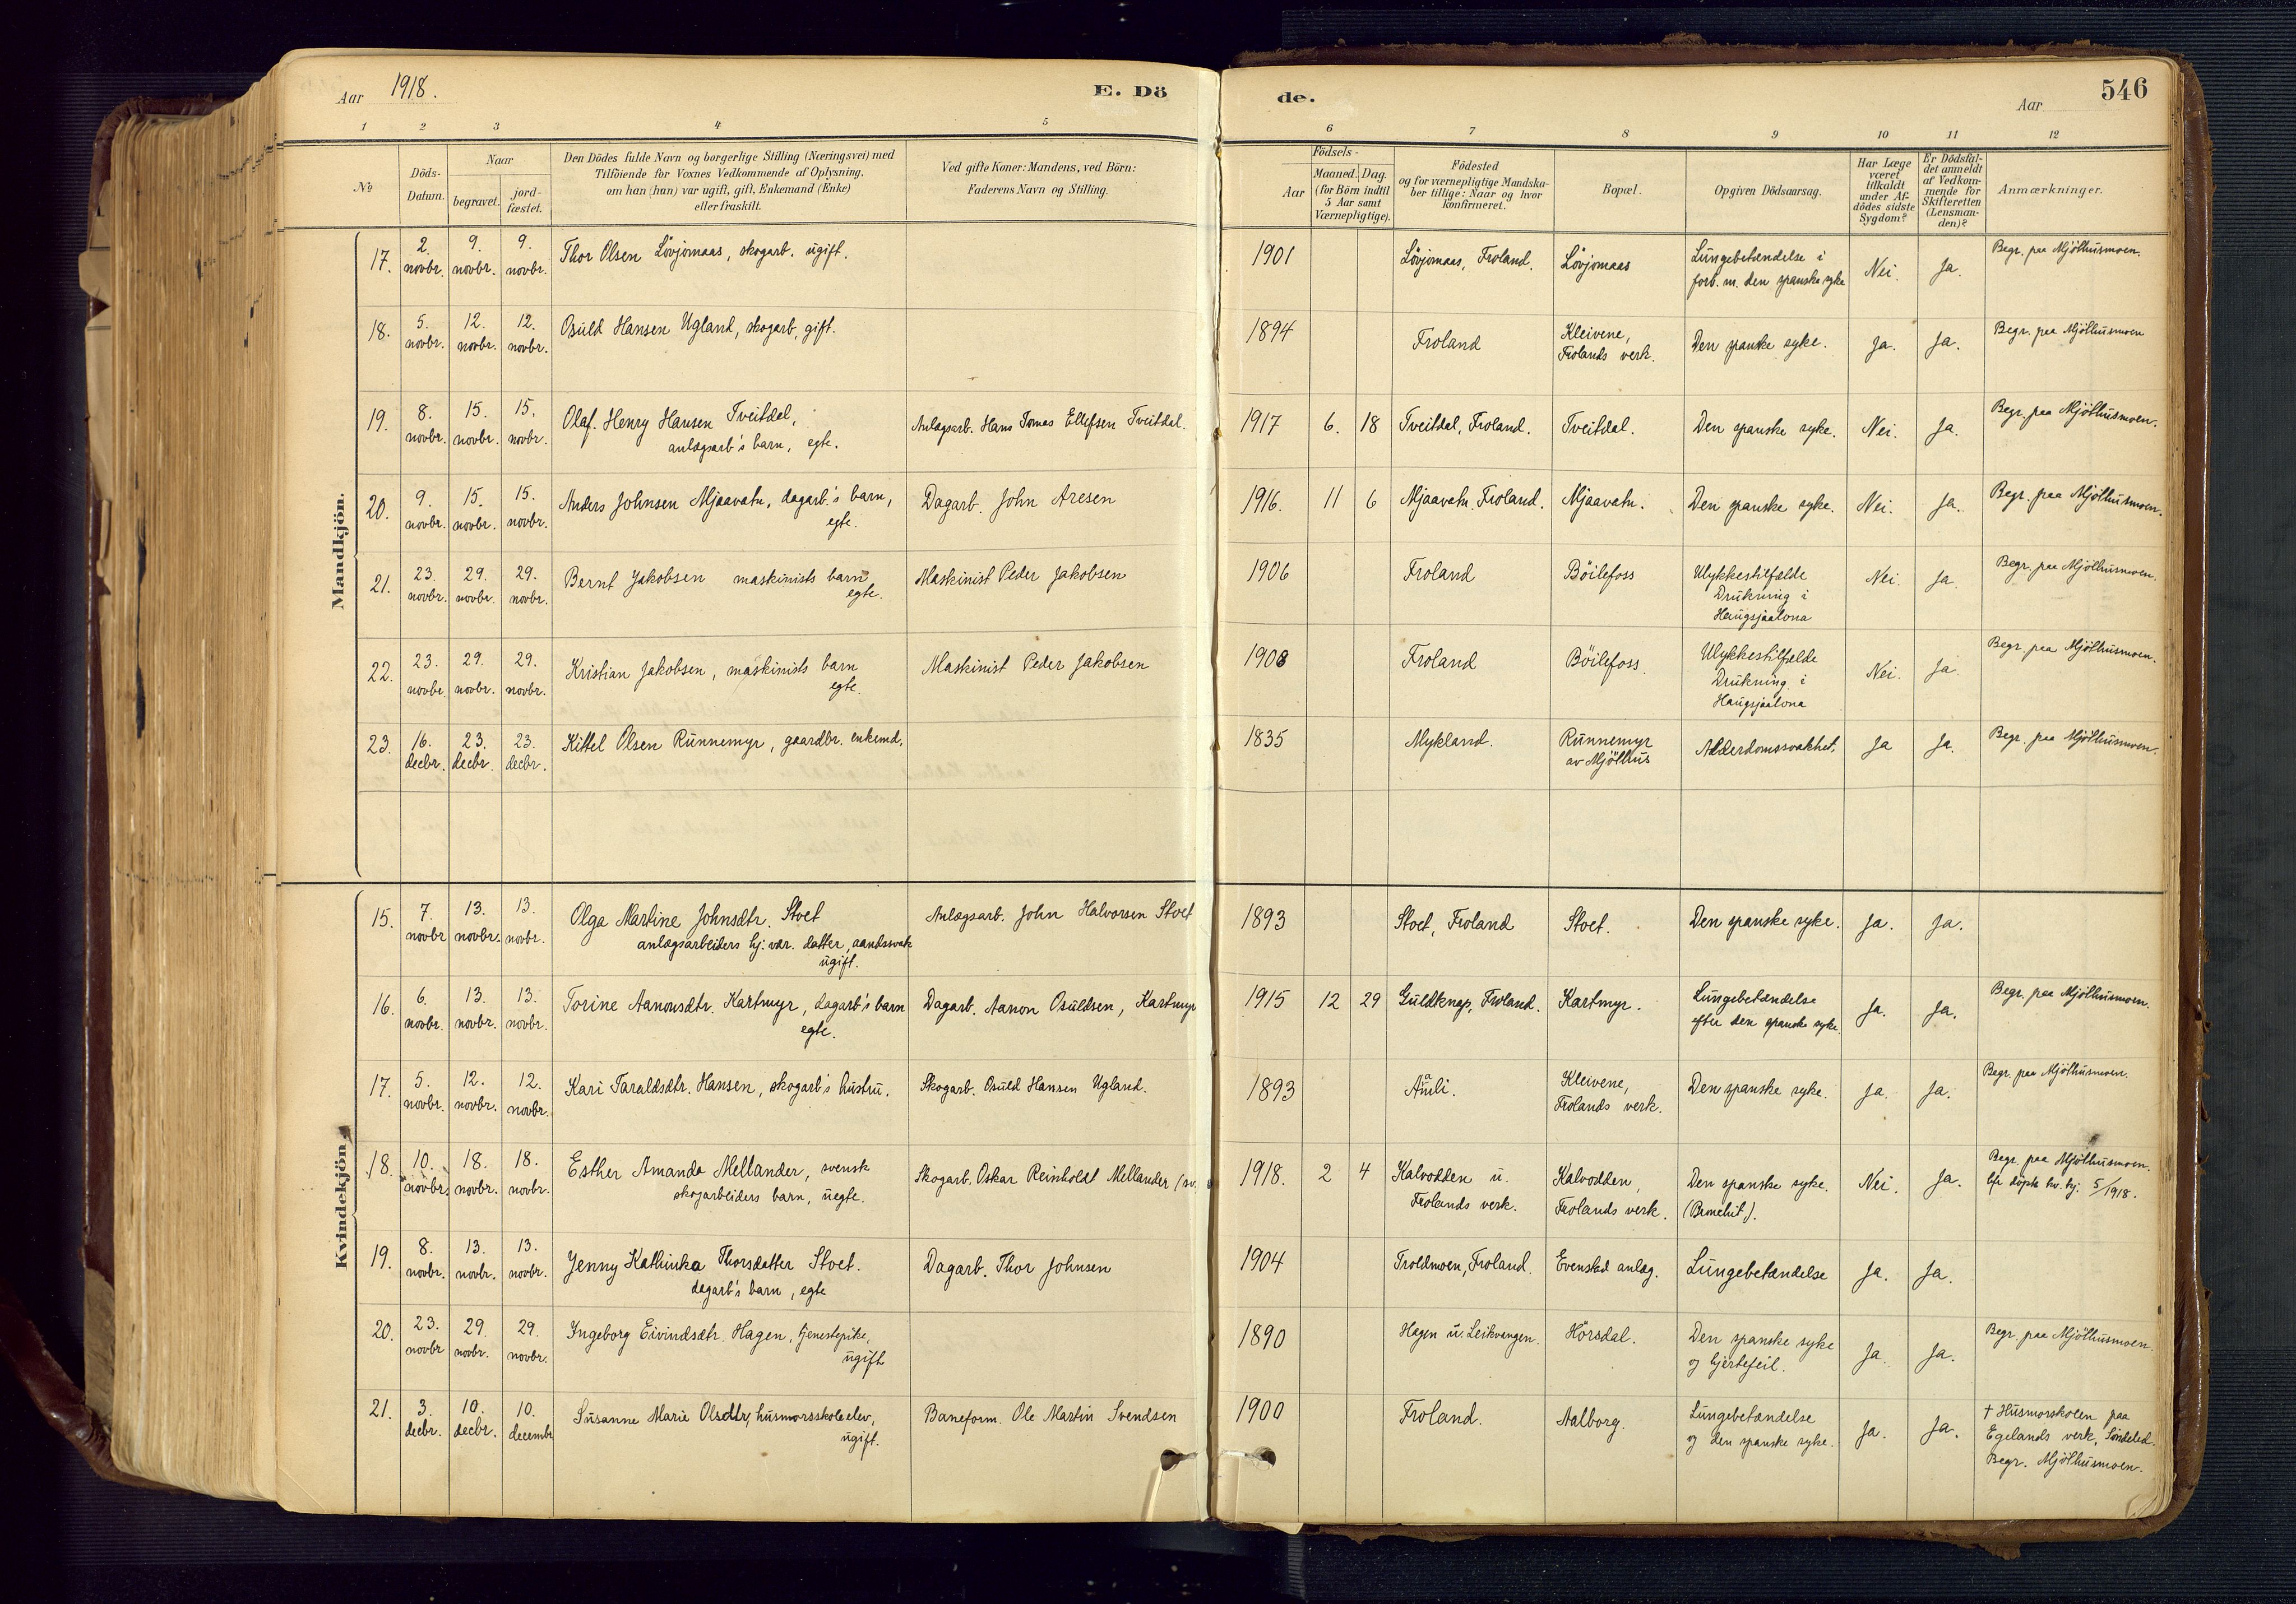 Aar 1918.
E. Dö
de.
Aar
546
1 2 3 4 5 6 7 8 9 10 11 12
№
Döds-
Datum.
Naar
begravet.
jord-
fæstet.
Den Dödes fulde Navn og borgerlige Stilling (Næringsvei) med
Tilföiende for Voxnes Vedkommende af Oplysning,
om han (hun) var ugift, gift, Enkemand (Enke)
eller fraskilt.
Ved gifte Koner: Mandens, ved Börn:
Faderens Navn og Stilling.
Födsels-
Aar
Maaned. Dag.
(for Börn indtil
5 Aar samt
Værnepligtige).
Födested
og for værnepligtige Mandska-
ber tillige: Naar og hvor
konfirmeret.
Bopæl.
Opgiven Dödsaarsag.
Har Læge
været
tilkaldt
under Af-
dödes sidste
Sygdom?
Er Dödsfal-
det anmeldt
af Vedkom-
mende for
Skifteretten
(Lensman-
den)?
Anmærkninger.
Mandkjön.
17. 2. novbr. 9. novbr. 9. novbr. Thor Olsen Lövjomaas, skogarb. ugift. 1901 Lövjomaas, Froland. Lövjomaas Lungebetændelse i
forb. m. den spanske syke Nei. Ja. Begr. paa Mjölhusmoen.
18. 5. novbr. 12. novbr. 12. novbr. Osuld Hansen Ugland, skogarb, gift. 1894 Froland Kleivene,
Frolands verk. Den spanske syke. Ja. Ja. Begr. paa Mjölhusmoen
19. 8. novbr. 15. novbr. 15. novbr. Olaf. Henry Hansen Tveitdal,
anlægsarb's barn, egte. Anlægsarb. Hans Tomas Ellefsen Tveitdal. 1917 6. 18 Tveitdal, Froland. Tveitdal. Den spanske syke. Nei. Ja. Begr. paa Mjölhusmoen.
20. 9. novbr. 15. novbr. 15. novbr. Anders Johnsen Mjaavatn, dagarb.'s barn,
egte. Dagarb. John Aresen 1916. 11 6 Mjaavatn. Froland. Mjaavatn. Den spanske syke. Nei. Ja. Begr. paa Mjölhusmoen.
21. 23. novbr. 29. novbr. 29. novbr. Bernt Jakobsen maskinists barn
egte. Maskinist Peder Jakobsen 1906 Froland Böilefoss Ulykkestilfælde
Drukning i
Haugsjaalona Nei. Ja. Begr. paa Mjölhusmoen.
22. 23. novbr. 29. novbr. 29. novbr. Kristian Jakobsen, maskinists barn
egte. Maskinist Peder Jakobsen 1908 Froland Böilefoss. Ulykkestilfælde
Drukning i
Haugsjaalona Nei. Ja. Begr. paa Mjölhusmoen.
23. 16. decbr. 23. decbr. 23. decbr. Kittel Olsen Runnemyr, gaardbr. enkemd. 1835 Mykland. Runnemyr
av Mjölhus Alderdomssvakhet. Ja Ja. Begr. paa Mjölhusmoen.
Kvindekjön.
15. 7. novbr 13. novbr. 13. novbr. Olga Martine Johnsdtr. Stoet
anlægsarbeiders hj. vær. datter, aandssvak
ugift. Anlægsarb. John Halvorsen Stoet 1893 Stoet, Froland Stoet. Den spanske syke. Ja. Ja.
16. 6. novbr. 13. novbr. 13. novbr. Torine Aanonsdtr. Kartmyr, dagarb's barn
egte. Dagarb. Aanon Osuldsen, Kartmyr 1915 12 29 Guldknap, Froland. Kartmyr. Lungebetændelse
efter den spanske syke. Ja. Ja. Begr. paa Mjölhusmoen.
17. 5. novbr. 12. novbr. 12. novbr. Kari Taraldsdtr. Hansen, skogarb's hustru. Skogarb. Osuld Hansen Ugland. 1893 Aamli. Kleivene,
Frolands verk. Den spanske syke. Ja. Ja. Begr. paa Mjölhusmoen.
18. 10. novbr. 18. novbr. 18. novbr. Esther Amanda Mellander, svensk
skogarbeiders barn, uegte. Skogarb. Oskar Reinholdt Mellander (sv. 1918. 2 4 Kalvodden u.
Frolands verk. Kalvodden,
Frolands verk. Den spanske syke.
(Bronchit). Nei. Ja. Begr. paa Mjölhusmoen.
döpt hj. 5/1918.
19. 8. novbr. 13. novbr. 13. novbr. Jenny Kathinka Thorsdatter Stoet.
dagarb's barn, egte Dagarb. Thor Johnsen 1904 Troldmoen, Froland. Evenstad anlæg. Lungebetændelse Ja. Ja.
20. 23. novbr 29. novbr. 29. novbr. Ingeborg Eivindsdtr. Hagen, tjenestepike,
ugift 1890 Hagen u. Leikvangen. Hörsdal. Den spanske syke
og hjertefeil. Ja. Ja. Begr. paa Mjölhusmoen.
21. 3. decbr. 10. decbr. 10. decembr Susanne Marie Olsdtr, husmorsskoleelev,
ugift. Baneform. Ole Martin Svendsen 1900 Froland. Aalborg. Lungebetændelse
og den spanske syke. Ja. Ja. † Husmorskolen paa
Egelands verk, Söndeled.
Begr. Mjölhusmoen.